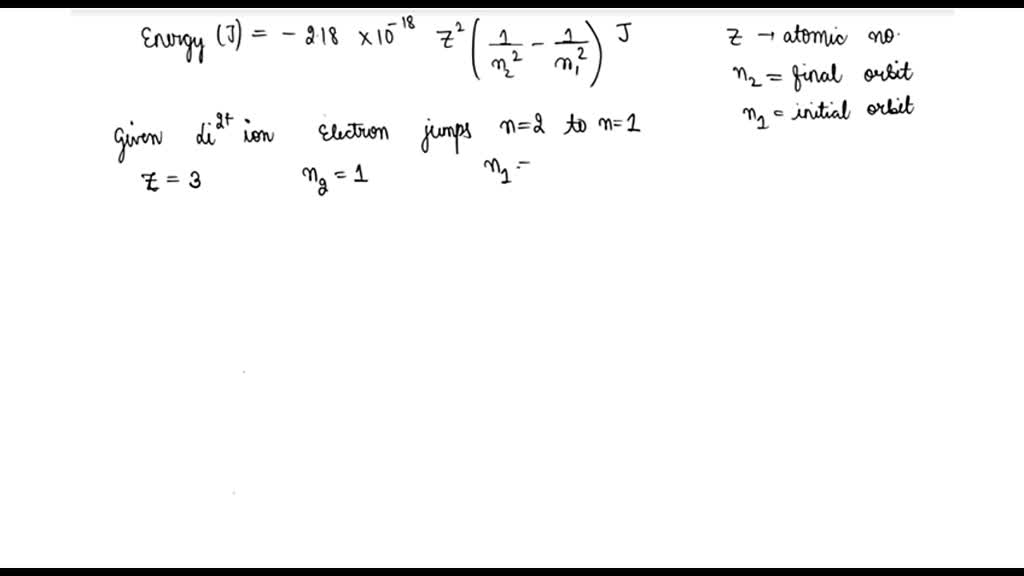 Energy (J) = - 2.18 × 10⁻¹⁸ Z² (1/n₂² - 1/n₁²) J
Z → atomic no.
n₂ = final orbit
n₁ = initial orbit
Given Li²⁺ ion Electron jumps n=2 to n=1
Z = 3 n₂ = 1 n₁ =